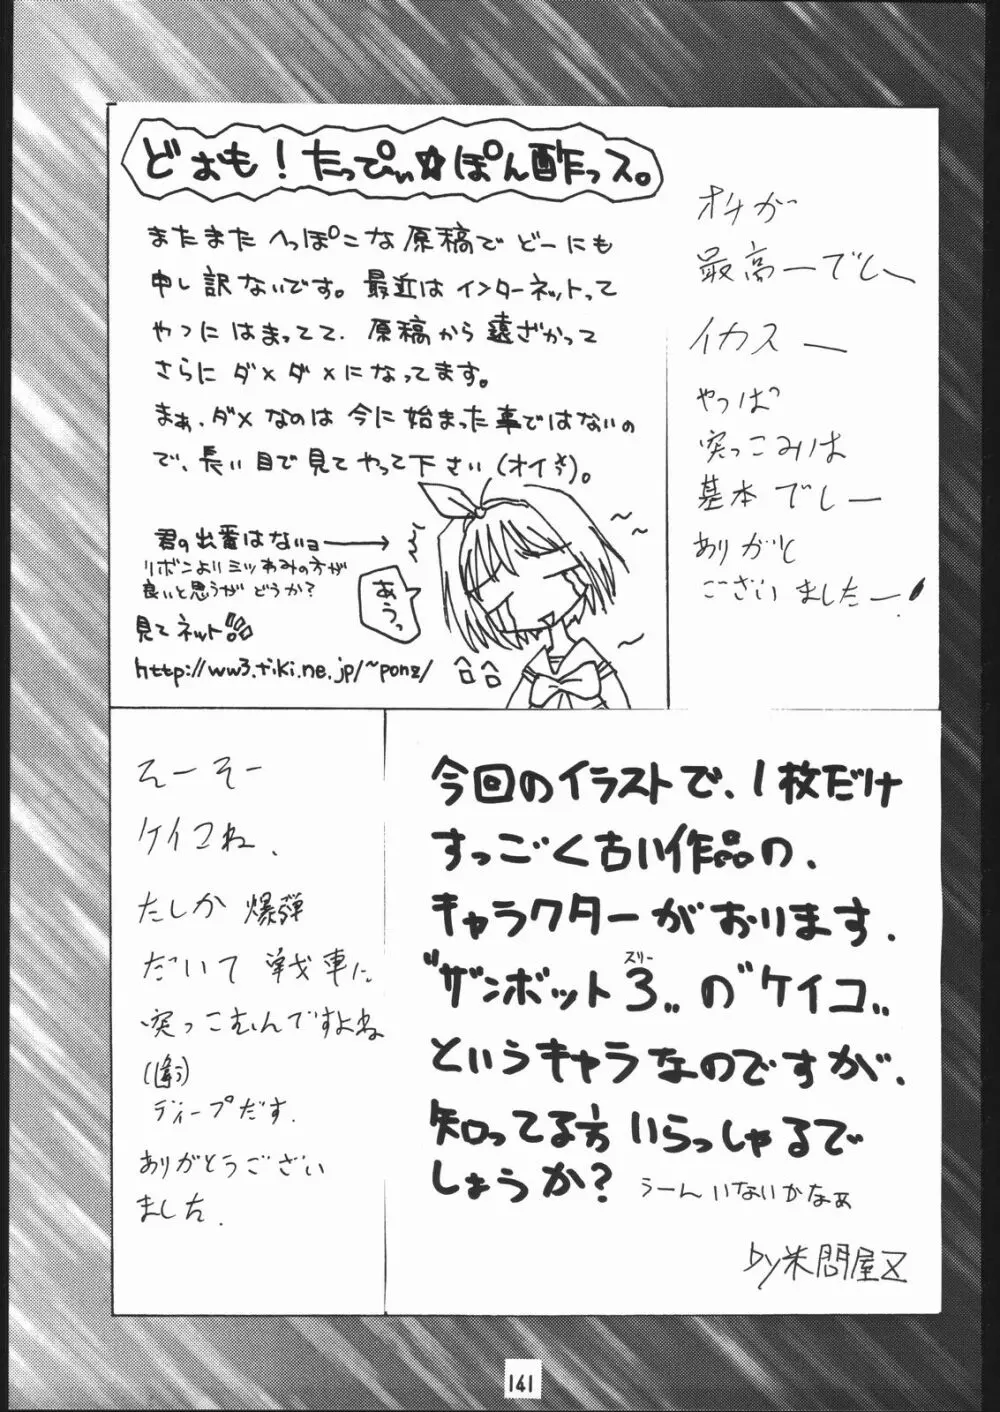 どぉも!たっぴぃ☆ぽん酢っス。
またまたへっぽこな原稿でどーにも
申し訳ないです。最近はインターネットって
やつにはまってて、原稿から遠ざかって
さらにダメダメになってます。
まぁ、ダメなのは今に始まった事ではないの
で、長い目で見てやって下さい(オイさ)。
君の出番はないョ
リボンよりミツあみの方が
良いと思うがどうか?
あうっ
見てネット
http://ww3.tiki.ne.jp/~ponz/
オチが
最高ーでしー
イカスー
やっぱっ
突っこみは
基本でしー
ありがと
ございましたー!
えーそー
ケイコね、
たしか爆弾
だいて戦車に
突っこむんですよね
(違う)
ディープだす.
ありがとうござい
ました.
今回のイラストで、1枚だけ
すっごく古い作品の、
キャラクターがおります.
スリー
"ザンボット3"の"ケイコ"
というキャラなのですが、
知ってる方いらっしゃるで
しょうか?うーんいないかなぁ
by米問屋Z
141